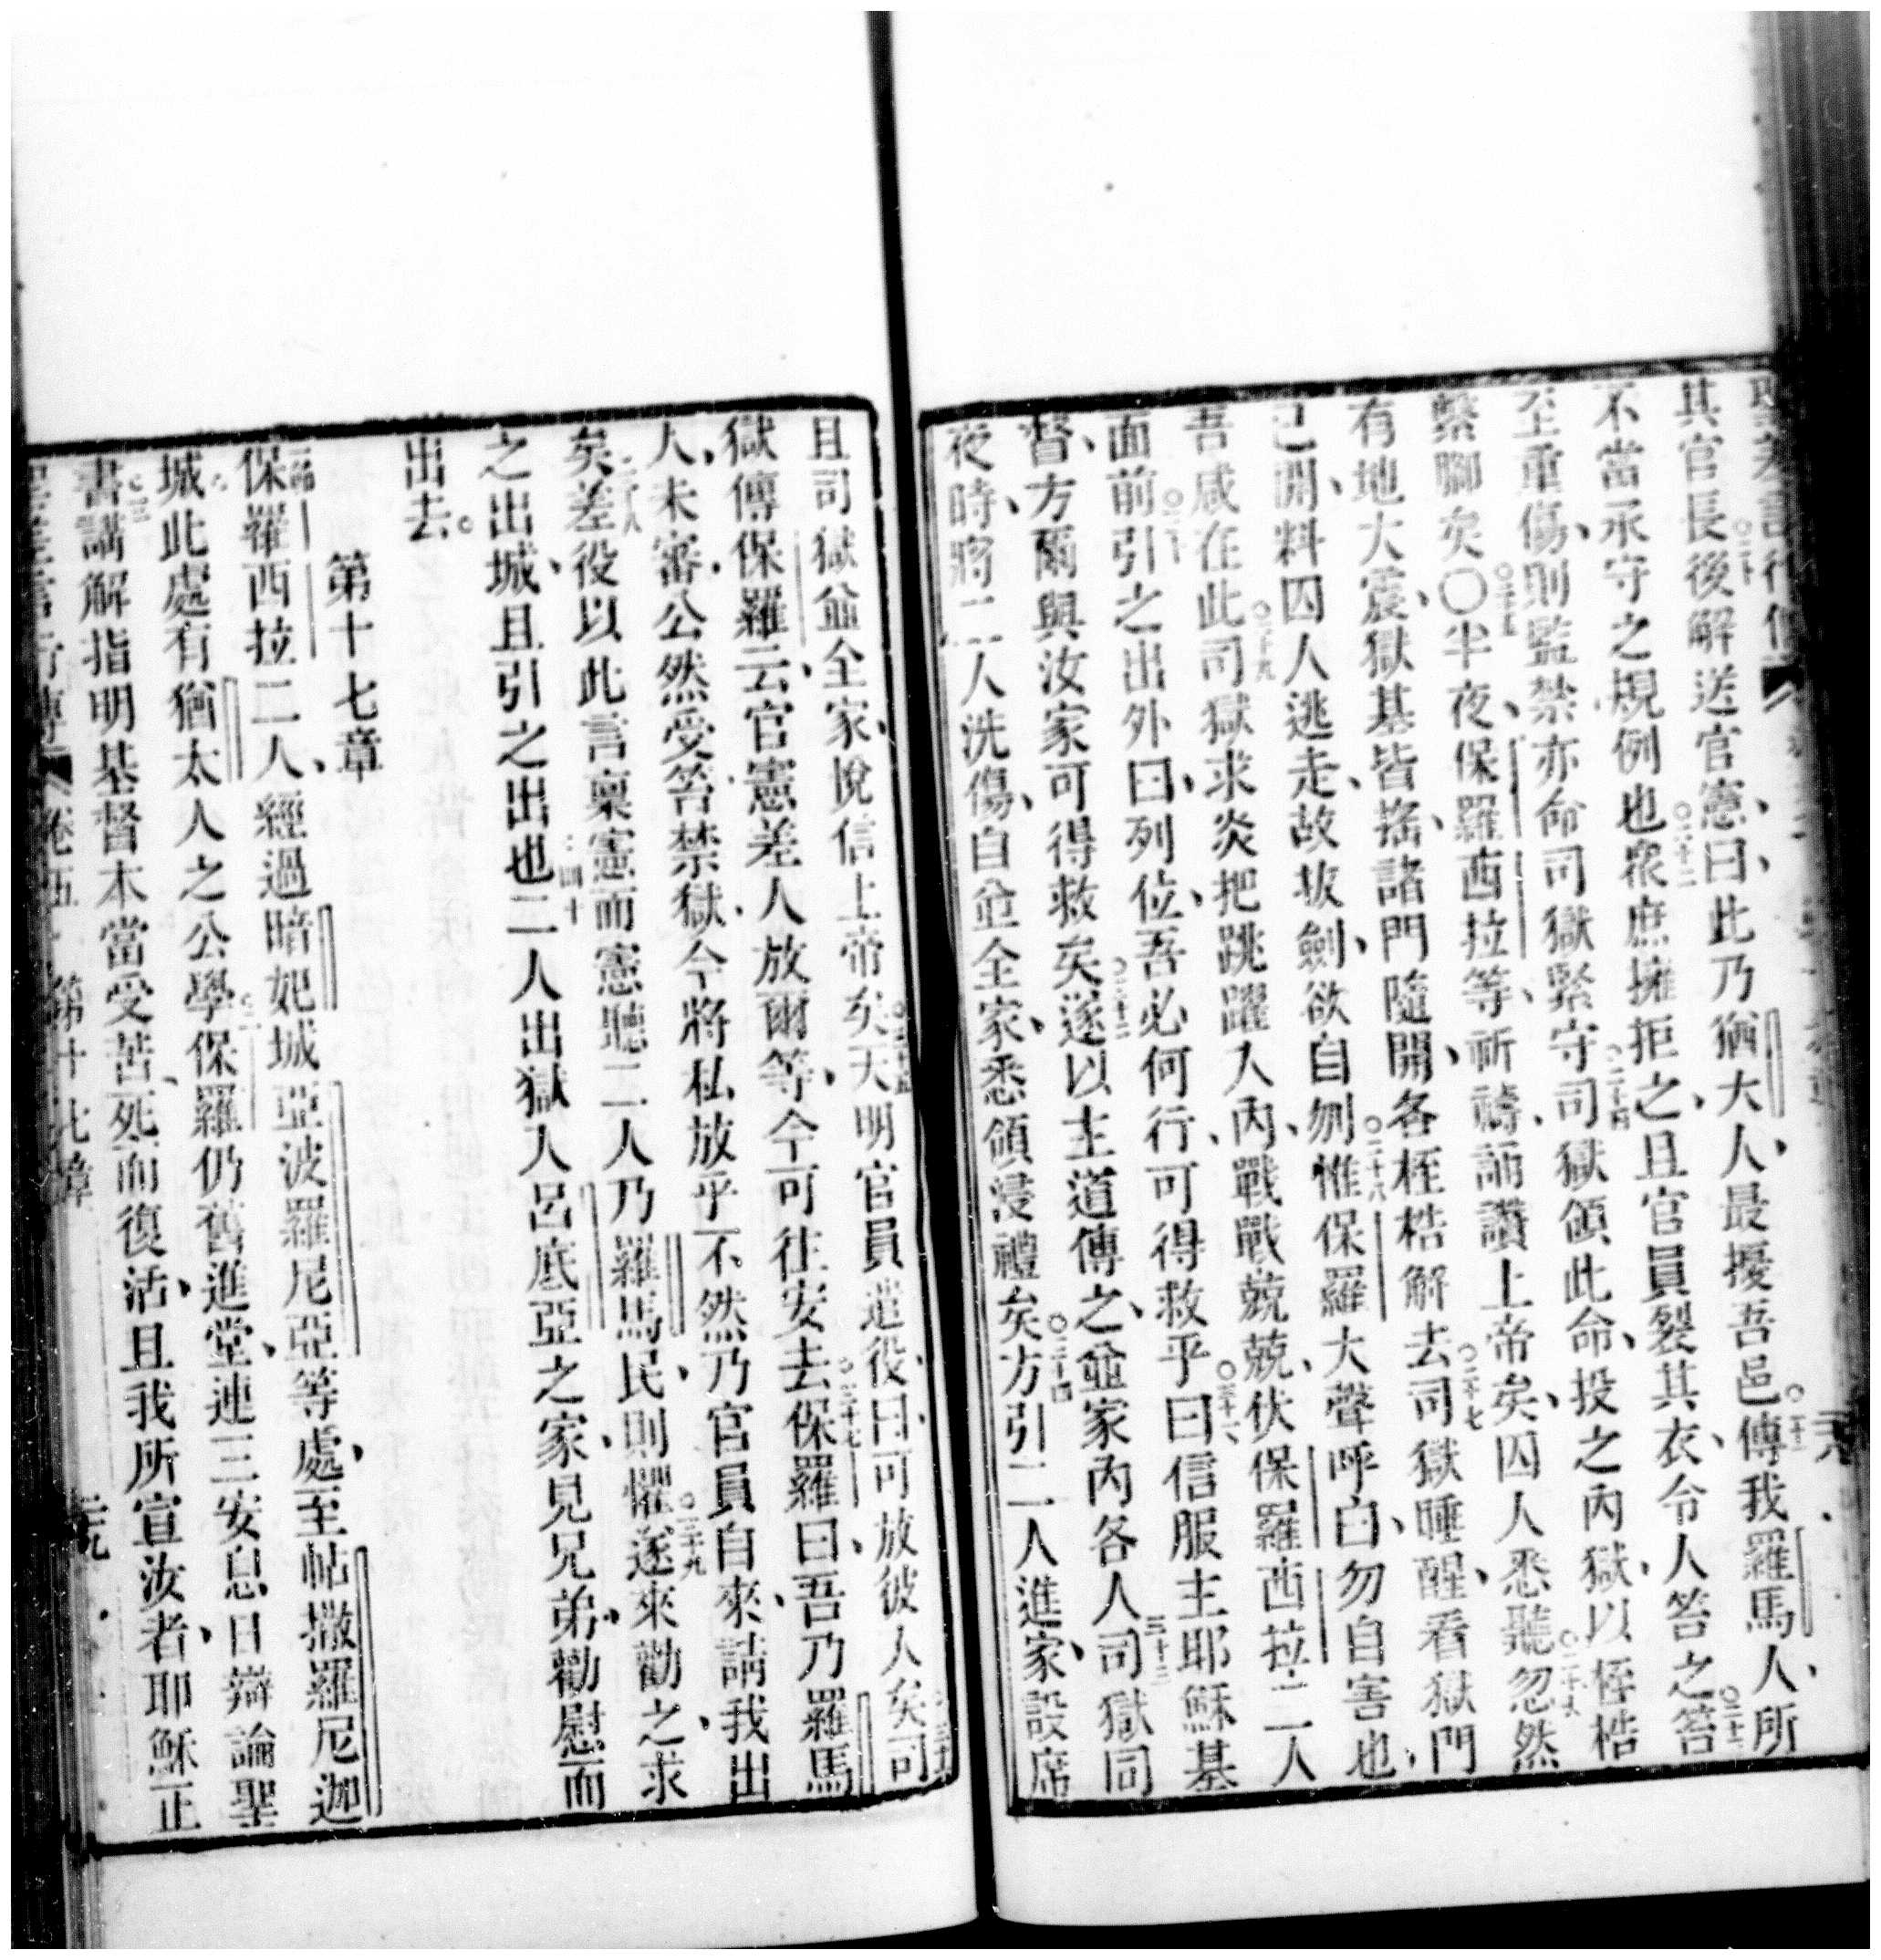 其官長後解送官憲曰此乃猶太人最擾吾邑傳我羅馬人所
不當承守之規例也衆庶擁拒之且官員裂其衣令人笞之笞
至重傷則監禁亦命司獄緊守司獄領此命投之內獄以桎梏
繫腳矣〇半夜保羅西拉等祈禱誦讚上帝矣囚人悉聽忽然
有地大震獄基皆搖諸門隨開各桎梏解去司獄睡醒看獄門
已開料囚人逃走故拔劍欲自刎惟保羅大聲呼曰勿自害也
吾咸在此司獄求炎把跳躍入內戰戰兢兢伏保羅西拉二人
面前引之出外曰列位吾必何行可得救乎曰信服主耶穌基
督方爾與汝家可得救矣遂以主道傳之並家內各人司獄同
夜時將二人洗傷自並全家悉領浸禮矣方引二人進家設席
且司獄並全家悅信上帝矣天明官員遣役曰可放彼人矣司
獄傳保羅云官憲差人放爾等今可往安去保羅曰吾乃羅馬
人未審公然受笞禁獄今將私放乎不然乃官員自來請我出
矣差役以此言稟憲而憲聽二人乃羅馬民則懼遂來勸之求
之出城且引之出也二人出獄入呂底亞之家見兄弟勸慰而
出去
第十七章
保羅西拉二人經過暗妃城亞波羅尼亞等處至帖撒羅尼迦
城此處有猶太人之公學保羅仍舊進堂連三安息日辯論聖
書講解指明基督本當受苦死而復活且我所宣汝者耶穌正